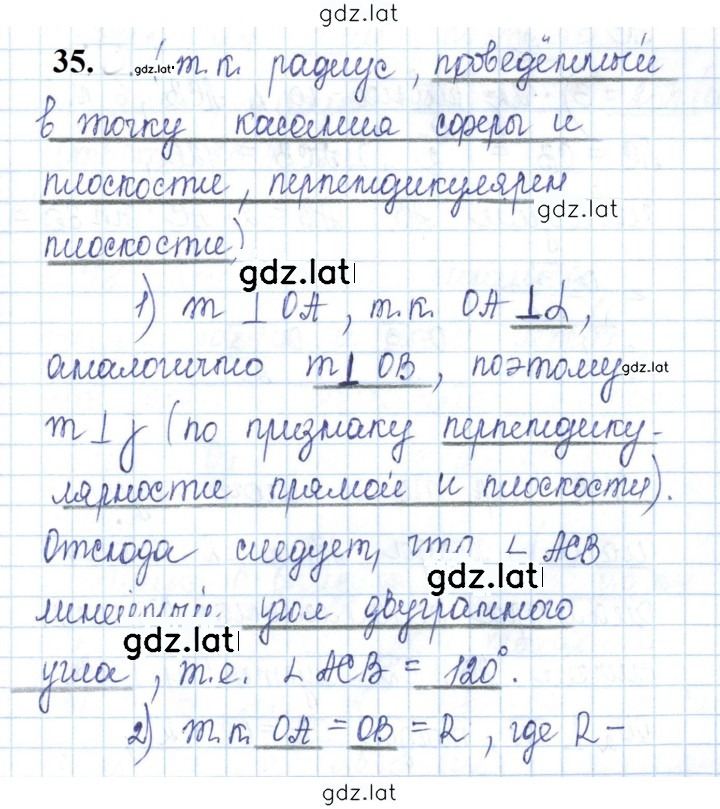 gdz.lat
35. gdz.lat т.к. радиус, проведённый
в точку касания сферы и
плоскости, перпендикулярен
gdz.lat
плоскости)
gdz.lat
1) m ⊥ OA, т.к. OA ⊥ α,
аналогично m ⊥ OB, поэтому gdz.lat
m ⊥ γ (по признаку перпендику-
лярности прямой и плоскости).
Отсюда следует, что ∠ ACB
gdz.lat
угол двугранного
gdz.lat
угла, т.е. ∠ ACB = 120°.
2) т.к. OA = OB = R, где R –
gdz.lat